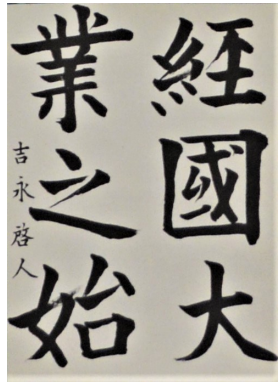 經國大
業之始
吉永啓人